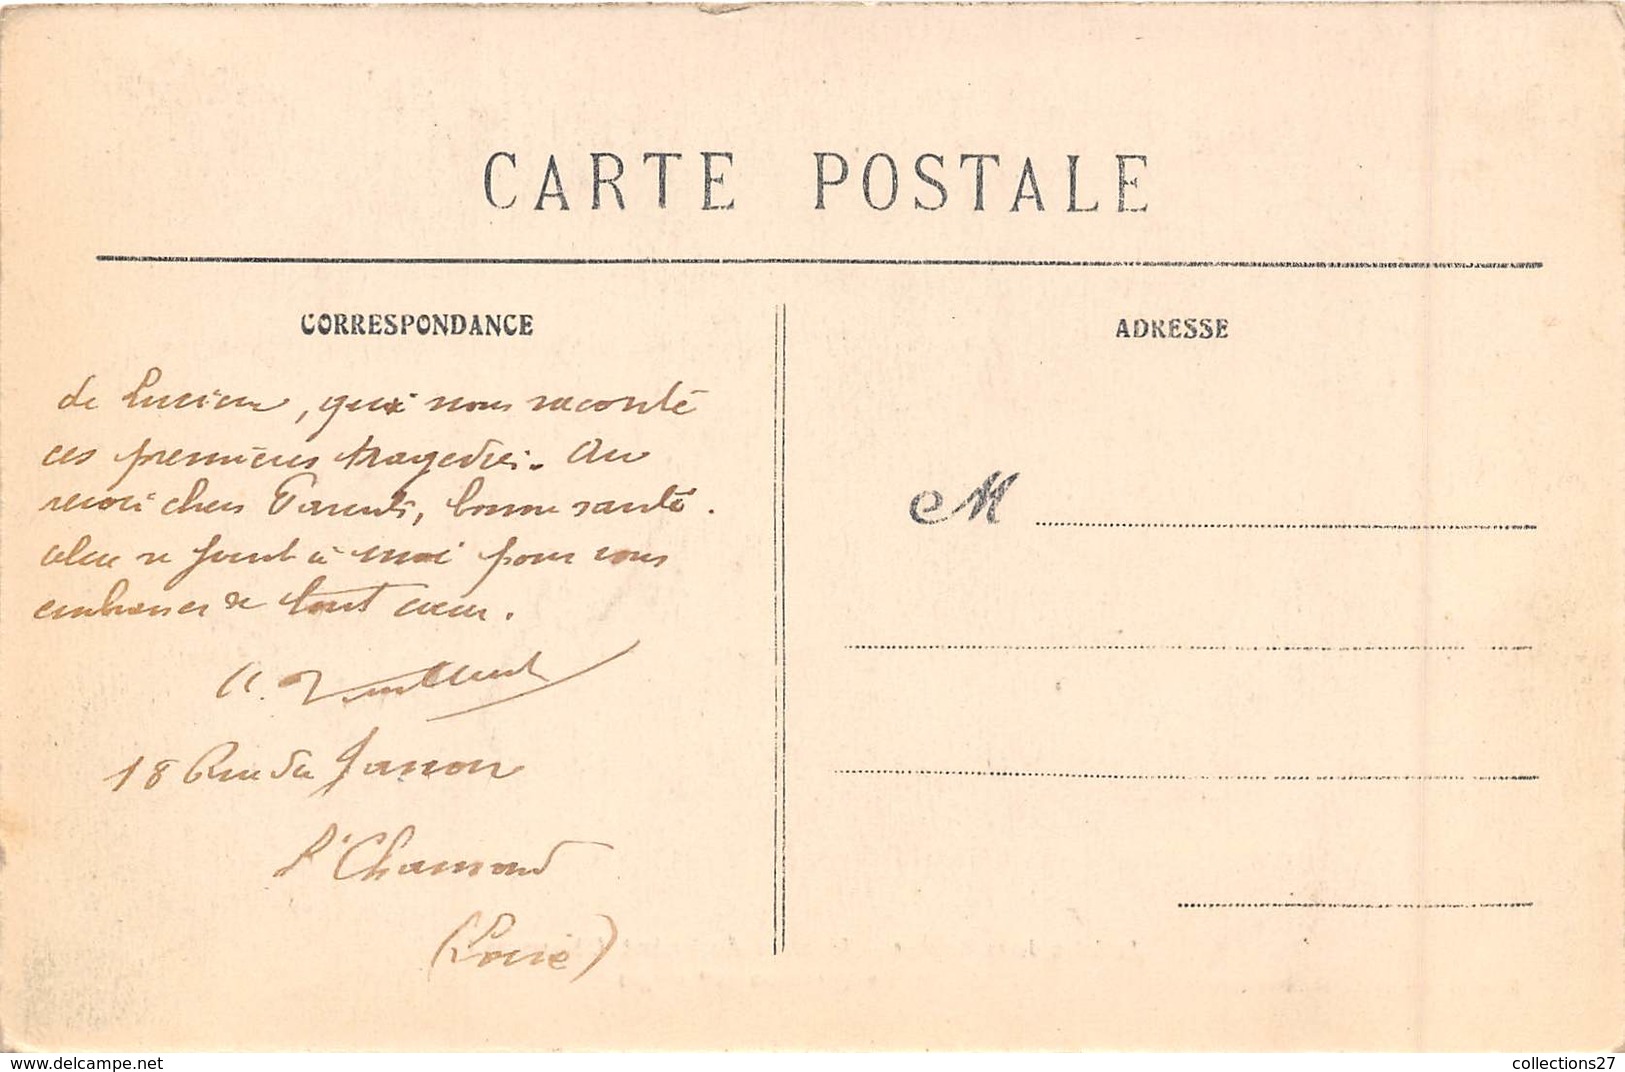 CARTE POSTALE
CORRESPONDANCE
ADRESSE
de Lucien, qui nous raconte
ces premières tragedies. Au
revoir chers Parents, bonne santé.
se joint à moi pour vous
embrasser de tout cœur.
18 Rue du Janon
St Chamond
(Loire)
M
collections27